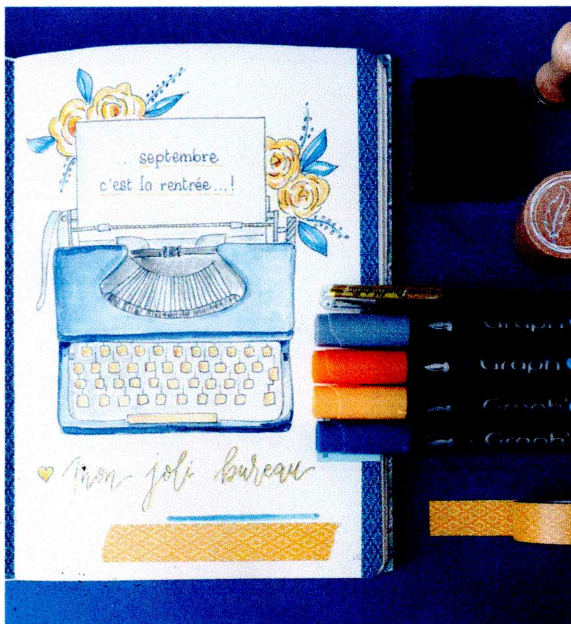 ... septembre
c'est la rentrée...!
Mon joli bureau
Graph'
Graph'
Graph'
Graph'